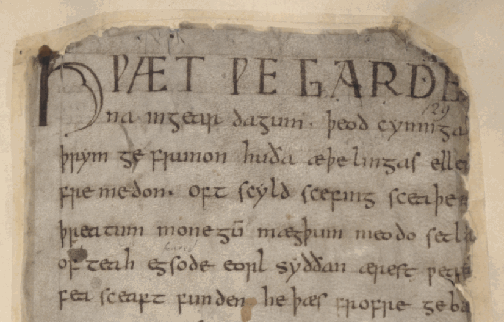 HǷÆT ǷE GARDE
129
na ingear dagum. þeod cyninga
þrym ge frunon huða æþelingas elle
fremedon. oft scyld scefing sceaþe
þreatum monegū mægþum meodo setla
of teah egsode eorl syððan ærest ƿear
fea sceaft funden he þæs frofre geba